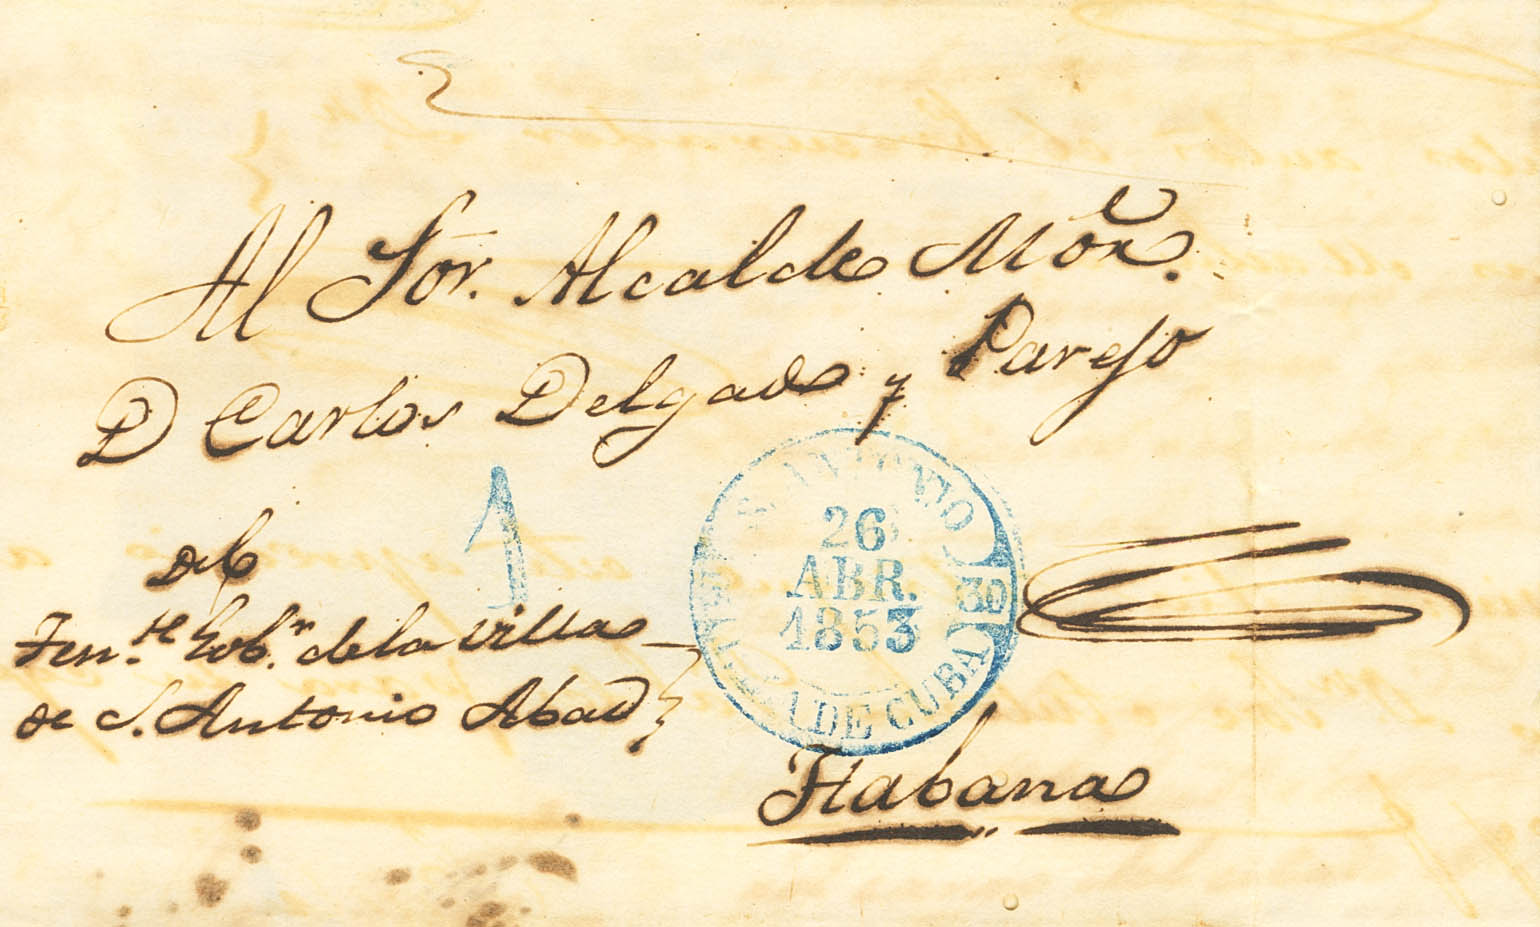 Al Sor. Alcalde Mor.
D Carlos Delgado y Parejo
1
S. ANTONIO
26
ABR.
1853
30
ISLA DE CUBA
Del
Ten.te Gob.r de la villa
de S. Antonio Abad
Habana